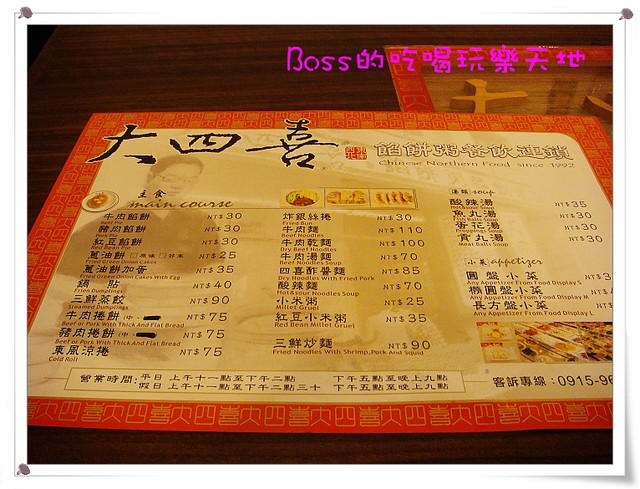 Boss的吃喝玩樂天地
大四喜
餡餅粥餐飲連鎖
Chinese Northern Food since 1992
主食
main course
牛肉餡餅 NT$30
Beef Pie
豬肉餡餅 NT$30
Pork Pie
紅豆餡餅 NT$30
Red Bean Pie
蔥油餅 NT$25
Fried Green Onion Cakes
蔥油餅加蛋 NT$35
Fried Green Onion Cakes With Egg
鍋貼 NT$40
Fried Dumplings
三鮮蒸餃 NT$90
Steamed Dumplings
牛肉捲餅 NT$75
Beef or Pork With Thick And Flat Bread
豬肉捲餅 NT$75
Beef or Pork With Thick And Flat Bread
東風涼捲 NT$75
Cold Roll
炸銀絲捲 NT$30
Fried Bun
牛肉麵 NT$110
Beef Noodles
牛肉乾麵 NT$100
Dry Beef Noodles
牛肉湯麵 NT$70
Beef Noodles
四喜酢醬麵 NT$85
Dry Noodles With Fried Pork
酸辣麵 NT$70
Hot&Sour Noodles Soup
小米粥 NT$25
Millet Gruel
紅豆小米粥 NT$35
Red Bean Millet Gruel
三鮮炒麵 NT$90
Fried Noodles With Shrimp,Pork And Squid
湯類 soup
酸辣湯 NT$35
Hot&Sour Soup
魚丸湯 NT$30
Fish Balls Soup
蛋花湯 NT$30
貢丸湯 NT$30
Meat Balls Soup
小菜 appetizer
圓盤小菜
Any Appetizer From Food Display S
橢圓盤小菜
Any Appetizer From Food Display M
長方盤小菜
Any Appetizer From Food Display L
營業時間:平日 上午十一點至下午二點 下午五點至晚上九點
假日 上午十一點至下午二點三十 下午五點至晚上九點
客訴專線:0915-96